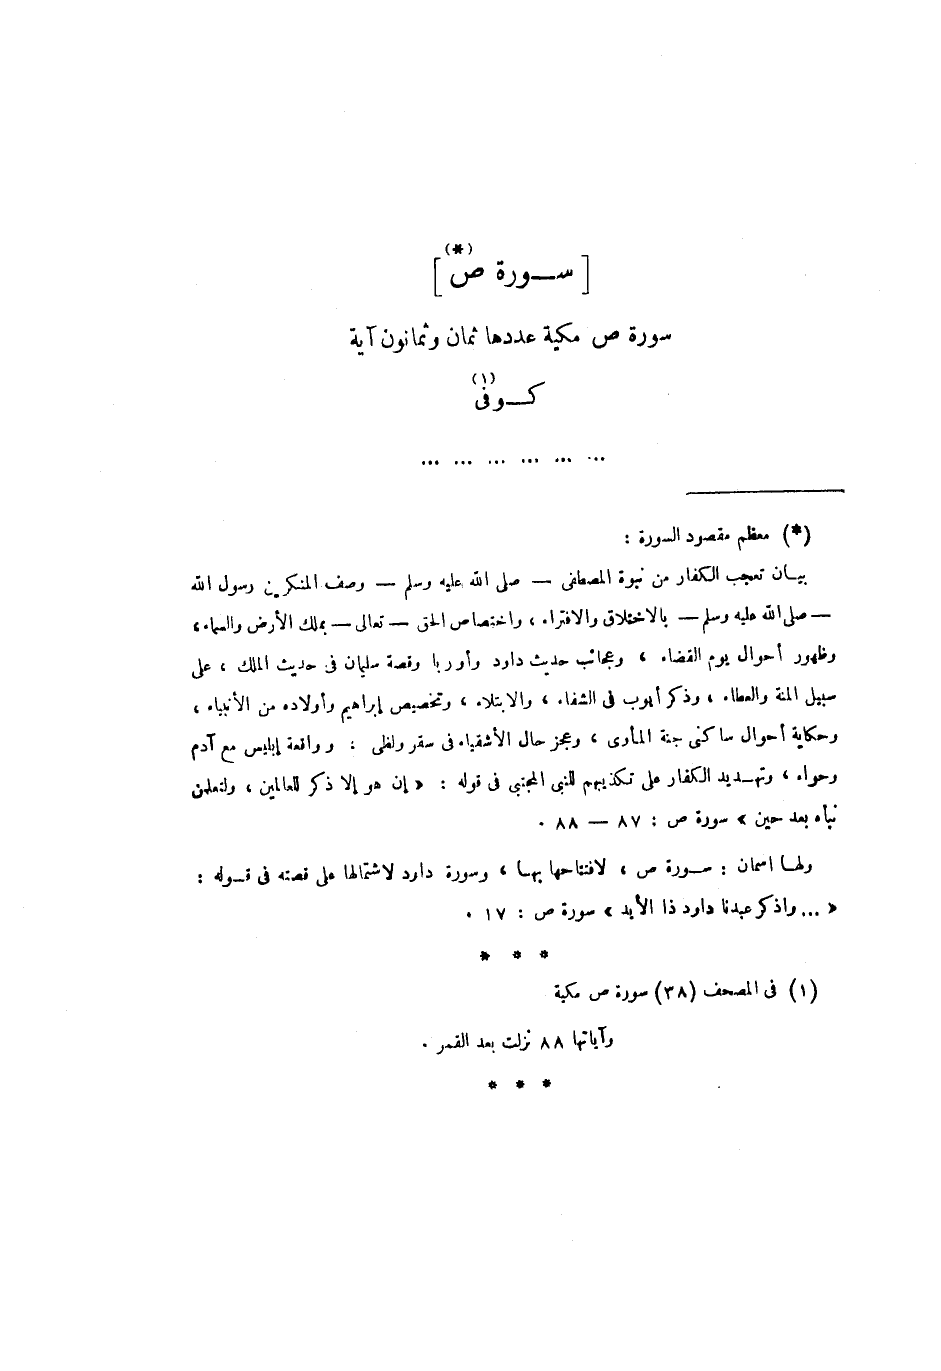 [ ســورة ص (*) ]
سورة ص مكية عددها ثمان وثمانون آية
كــوفى (١)
... ... ... ... ... ...
(*) معظم مقصود السورة :
بيـان تعجب الكفار من نبوة المصطفى — صلى الله عليه وسلم — وصف المنكرين رسول الله
— صلى الله عليه وسلم — بالاختلاق والافتراء ، واختصاص الحق — تعالى — بملك الأرض والسماء ،
وظهور أحوال يوم القضاء ، وعجائب حديث داود وأوريا وقصة سليمان فى حديث الملك ، على
سبيل المنة والعطاء ، وذكر أيوب فى الشفاء ، والابتلاء ، وتخصيص إبراهيم وأولاده من الأنبياء ،
وحكاية أحوال ساكنى جنة المأوى ، وعجز حال الأشقياء فى سقر ولظى : وواقعة إبليس مع آدم
وحواء ، وتهـديد الكفار على تكذيبهم للنبى المجتبى فى قوله : « إن هو إلا ذكر للعالمين ، ولتعلمن
نبأه بعد حين » سورة ص : ٨٧ — ٨٨ .
ولهـا اسمان : ســورة ص ، لافتتاحها بهـا ، وسورة داود لاشتمالها على قصته فى قـوله :
« ... واذكر عبدنا داود ذا الأيد » سورة ص : ١٧ .
* * *
(١) فى المصحف (٣٨) سورة ص مكية
وآياتها ٨٨ نزلت بعد القمر .
* * *